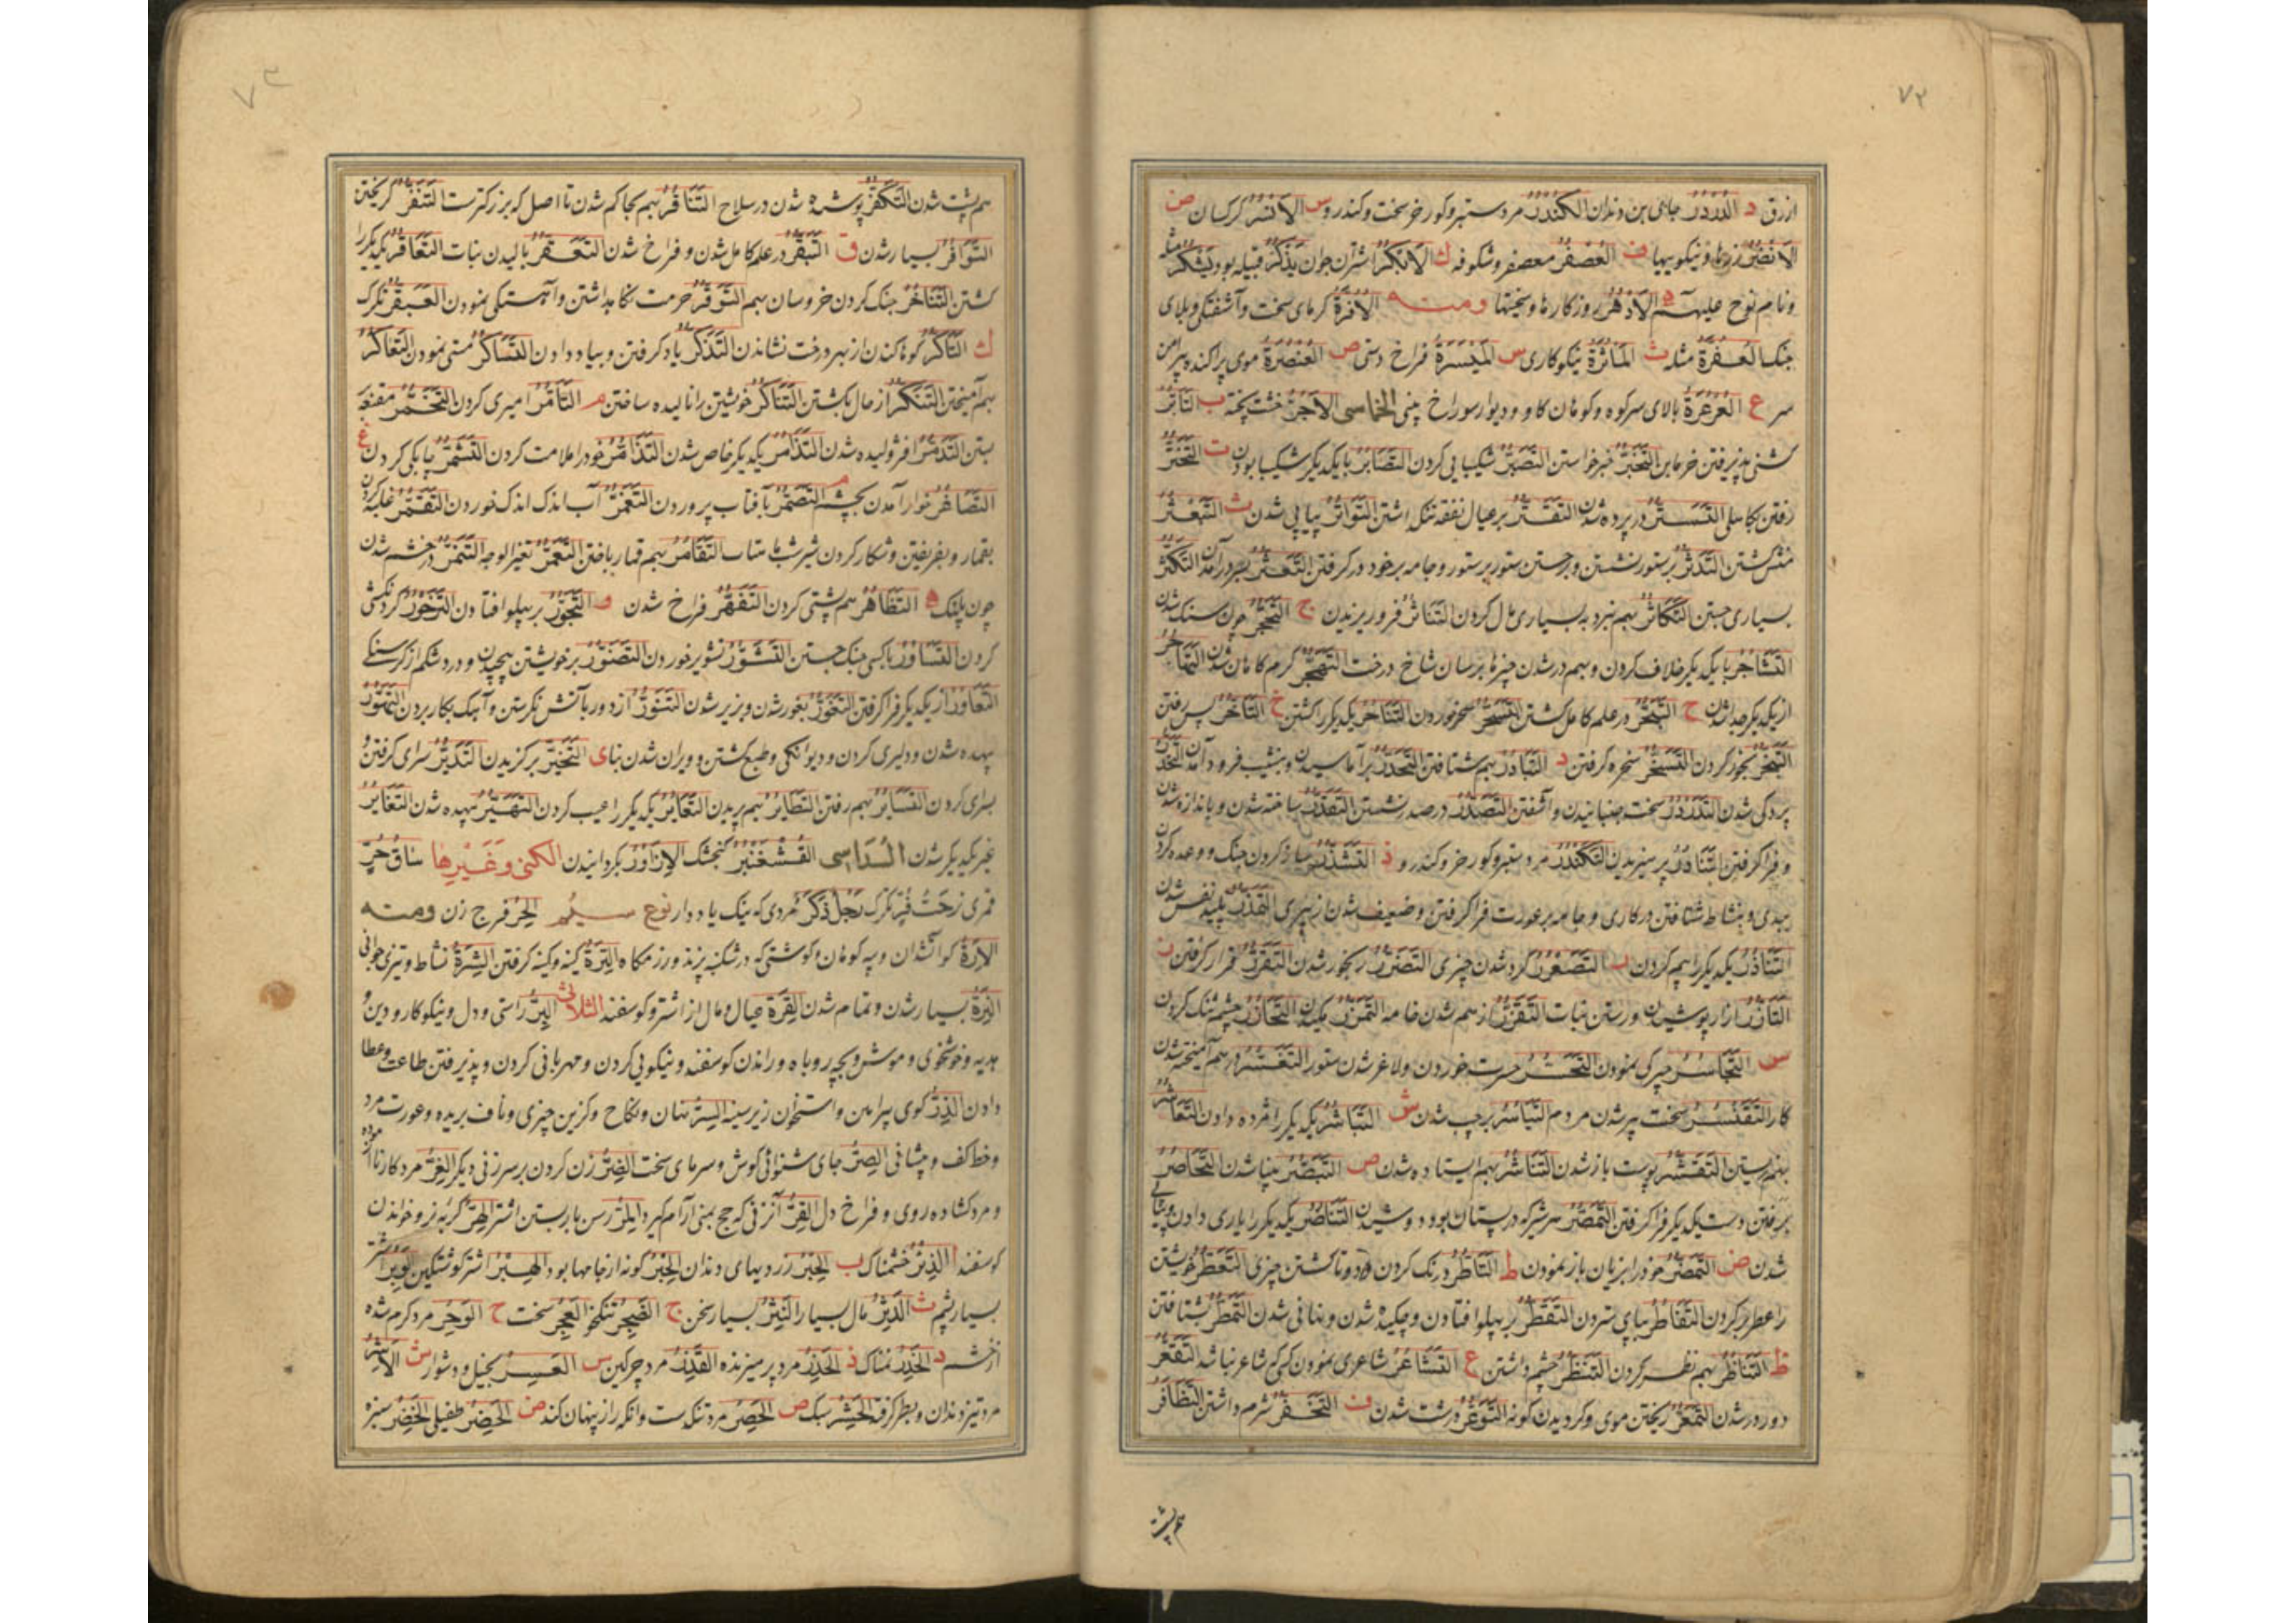 ۷۲
ازرق د الدُّرْدُرُ جای بن دندان الکُنْدُرُ مرد ستبر و کورخر سخت و کندرو س الاَنْسُرُ کرکسان ض
الاَنْضُرُ زرها و نیکوییها ف العُصْفُرُ معصفر و شکوفه ک الاَبْکُرُ اشتران جوان یَذْکُرُ قبیله بود یَشْکُرُ مثله
و نام نوح علیه ه الاَدْهُرُ روزکارها و سختیها ومنه الاُفُرَّةُ کرمای سخت و آشفتکی و بلای
جنک العُفُرَّةُ مثله ث المَاْثُرَةُ نیکوکاری س المَیْسُرَةُ فراخ دستی ص العُنْصُرَةُ موی پراکنده پیرامن
سر ع العُرْعُرَةُ بالای سر کوه و کوهان کاو و دیوار سوراخ بینی الخماسی الآجُرُّ خشت پخته ب التَّاَبُّرُ
کشنی پذیرفتن خرمابن التَّخَبُّرُ خبر خواستن التَّصَبُّرُ شکیبایی کردن التَّصَابُرُ با یکدیکر شکیبا بودن ت التَّخَتُّرُ
رفتن بکاهلی التَّسَتُّرُ در پرده شدن التَّقَتُّرُ بر عیال نفقه تنک داشتن التَّوَاتُرُ پیاپی شدن ث
کشتن التَّدَثُّرُ بر ستور نشستن و برجستن ستور بر ستور و جامه بر خود در کرفتن التَّعَثُّرُ بسر درآمدن التَّکَثُّرُ
بسیاری جستن التَّکَاثُرُ بهم نبرد به بسیاری مال کردن التَّنَاثُرُ فرو ریزیدن ج التَّحَجُّرُ چون سنک شدن
التَّشَاجُرُ با یکدیکر خلاف کردن و بهم در شدن چیزها برسان شاخ درخت التَّهَجُّرُ کرم کاهان شدن التَّهَاجُرُ
از یکدیکر جدا شدن ح التَّبَحُّرُ در علم کامل کشتن التَّسَحُّرُ سحر خوردن التَّنَاحُرُ یکدیکر را کشتن خ التَّاَخُّرُ پس رفتن
التَّبَخُّرُ بخور کردن التَّسَخُّرُ سخره کرفتن د التَّبَادُرُ بهم شتافتن التَّحَدُّرُ برآماسیدن و بنشیب فرود آمدن التَّخَدُّرُ
پردکی شدن التَّدَرْدُرُ سخت جنبانیدن و آشفتن التَّصَدُّرُ در صدر نشستن التَّقَدُّرُ ساخته شدن و باندازه شدن
و فرا کرفتن التَّنَادُرُ پرمیزیدن التَّکَنْدُرُ مرد ستبر و کورخر و کندرو ذ التَّشَذُّرُ ساز کردن جنک و وعده کردن
ببدی و بنشاط شتافتن در کاری و جامه بر عورت فرا کرفتن و ضعیف شدن از پیری التَّقَذُّرُ پلید نفس شدن
التَّنَاذُرُ یکدیکر را بیم کردن التَّصَعْرُرُ کرد شدن چیزی التَّضَرُّرُ رنجور شدن التَّقَرُّرُ قرار کرفتن ز
التَّاَزُّرُ ازار پوشیدن و رستن نبات التَّقَزُّرُ از هم شدن خامه التَّمَزُّرُ یکیدن التَّخَازُرُ چشم تنک کردن
س التَّجَاسُرُ چیرکی نمودن التَّحَسُّرُ حسرت خوردن و لاغر شدن ستور التَّغَسُّرُ درهم آمیخته شدن
کار التَّقَنْسُرُ سخت پیر شدن مردم التَّیَاسُرُ بر چپ شدن ش التَّبَاشُرُ یکدیکر را مژده دادن التَّعَاشُرُ
بهم زیستن التَّقَشُّرُ پوست باز شدن التَّنَاشُرُ بهم ایستاده شدن ص التَّبَصُّرُ بینا شدن التَّخَاصُرُ
برفتن دست یکدیکر فرا کرفتن التَّمَصُّرُ سر شیر که در پستان بود دوشیدن التَّنَاصُرُ یکدیکر را یاری دادن
شدن ض التَّمَضُّرُ خود را بزیان باز نمودن ط التَّاَطُّرُ درنک کردن و دوتا کشتن چیزی التَّعَطُّرُ خویشتن
را عطر بر کردن التَّقَاطُرُ بپای ستردن التَّقَطُّرُ بر پهلو افتادن و چکیده شدن و فانی شدن التَّمَطُّرُ بشتافتن
ظ التَّنَاظُرُ بهم نظر کردن التَّنَظُّرُ چشم داشتن ع التَّشَاعُرُ شاعری نمودن کسی که شاعر نباشد التَّقَعُّرُ
دور در شدن التَّمَعُّرُ ریختن موی و کردیدن کونه التَّوَعُّرُ درشت شدن ف التَّخَفُّرُ شرم داشتن التَّظَافُرُ
هم پشت
۷۳
هم پشت شدن التَّکَفُّرُ پوشیده شدن در سلاح التَّنَافُرُ بهم بحاکم شدن تا اصل که بزرکترست التَّنَفُّرُ کریختن
التَّوَافُرُ بسیار شدن ق التَّبَقُّرُ در علم کامل شدن و فراخ شدن بالیدن نبات التَّعَاقُرُ یکدیکر را
کشتن التَّنَاقُرُ جنک کردن خروسان بهم التَّوَقُّرُ حرمت نکاه داشتن و آهستکی نمودن العَبَقُرُّ تکرک
ک التَّاَکُّرُ کو ها کندن از بهر درخت نشاندن التَّذَکُّرُ یاد کرفتن و بیاد دادن التَّسَاکُرُ مستی نمودن التَّعَاکُرُ
بهم آمیختن التَّنَکُّرُ از حال بکشتن التَّنَاکُرُ خویشتن را نالیده ساختن م التَّاَمُّرُ امیری کردن التَّخَمُّرُ مقنعه
بستن التَّذَمُّرُ افژولیده شدن التَّذَامُرُ یکدیکر خاص شدن خود را ملامت کردن التَّشَمُّرُ چابکی کردن غ
التَّصَاغُرُ خوار آمدن بچشم م التَّصَمُّرُ بآفتاب پروردن التَّغَمُّرُ آب اندک اندک خوردن التَّقَمُّرُ غلبه کردن
بقمار و بفریفتن و شکار کردن شیر شبها بماهتاب التَّقَامُرُ بهم قمار باختن التَّعَمُّرُ تغیر الوجه التَّنَمُّرُ در خشم شدن
چون پلنک ه التَّظَاهُرُ هم پشتی کردن التَّفَهُّرُ فراخ شدن و التَّجَوُّرُ بر پهلو افتادن کردنکشی
کردن التَّسَاوُرُ با کسی جنک جستن التَّشَوُّرُ تشویر خوردن التَّضَوُّرُ بر خویشتن پیچیدن و درد شکم از کرسنکی
التَّعَاوُرُ از یکدیکر فرا کرفتن التَّغَوُّرُ بغور شدن و بزیر شدن التَّنَوُّرُ از دور بآتش نکرستن و آهک بکار بردن التَّهَوُّرُ
بیهده شدن و دلیری کردن و دیوانکی و طبع کشتن و ویران شدن بنا ی التَّخَیُّرُ برکزیدن التَّدَیُّرُ سرای کرفتن
بسرای کردن التَّسَایُرُ بهم رفتن التَّطَایُرُ بهم پریدن التَّعَایُرُ یکدیکر را عیب کردن التَّهَیُّرُ بیهده شدن التَّغَایُرُ
غیر یکدیکر شدن السداسی القُشْغَنْبُرُ کنجشک الاِزْاَوْرُ بکردانیدن الکنی وغیرها ساق حُرّ
قمری رَجُلٌ ذَکُرٌ مردی که نیک یاد دارد نوع سیم الحِرُ فرج زن ومنه
الاِرَةُ کو آتشدان و پیه کوهان و کوشتی که در شکنبه پزند و رزمکاه التِّرَةُ کینه و کینه کرفتن الشِّرَةُ نشاط و تیزی جوانی
بسیار شدن و تمام شدن القِرَةُ عیال و مال از اشتر و کوسفند الثلاثی البِرُّ راستی و دل و نیکوکار و دین و
هدیه و خوشخوی و موش و بچه روباه و راندن کوسفند و نیکویی کردن و مهربانی کردن و پذیرفتن طاعت و عطا
دادن الزِّرُّ کوی پیراهن و استخوان زیر سینه السِّرُّ نهان و نکاح و کزین چیزی و ناف بریده و عورت مرد
و خط کف و پیشانی الصِّرُّ جای شنوائی کوش و سرمای سخت الضِّرُّ زن کردن بر سر زنی دیکر الغِرُّ مرد کار ناآزموده
و مرد کشاده روی و فراخ دل القِرُّ آنروزی که حج بمنی آرام کیرد المِرُّ رسن بار بستن اشتر الهِرُّ کربه نر و خواندن
کوسفند ا الذَّئِرُ خشمناک ب الحِبَرُ زردیهای دندان الحِبِرُ کونه از جامها بود الهَبِرُ اشتر کوشتکین الوَبِرُ اشتر
بسیار پشم ث الدَّثِرُ مال بسیار النَّثِرُ بسیار سخن ج الضَّجِرُ تنکخو العَجِرُ سخت ح الوَحِرُ مرد کرم شده
از خشم د الخَدِرُ نمناک ذ الحَذِرُ مرد پرمیزنده القَذِرُ مرد چرکین س العَسِرُ بخیل و دشوار ش الاَشِرُ
مرد تیز دندان و بطر کرفته الحَشِرُ سبک ص الحَصِرُ مرد تنکدست و آنکه راز پنهان کند ض الحَضِرُ طفیلی الخَضِرُ سبزه